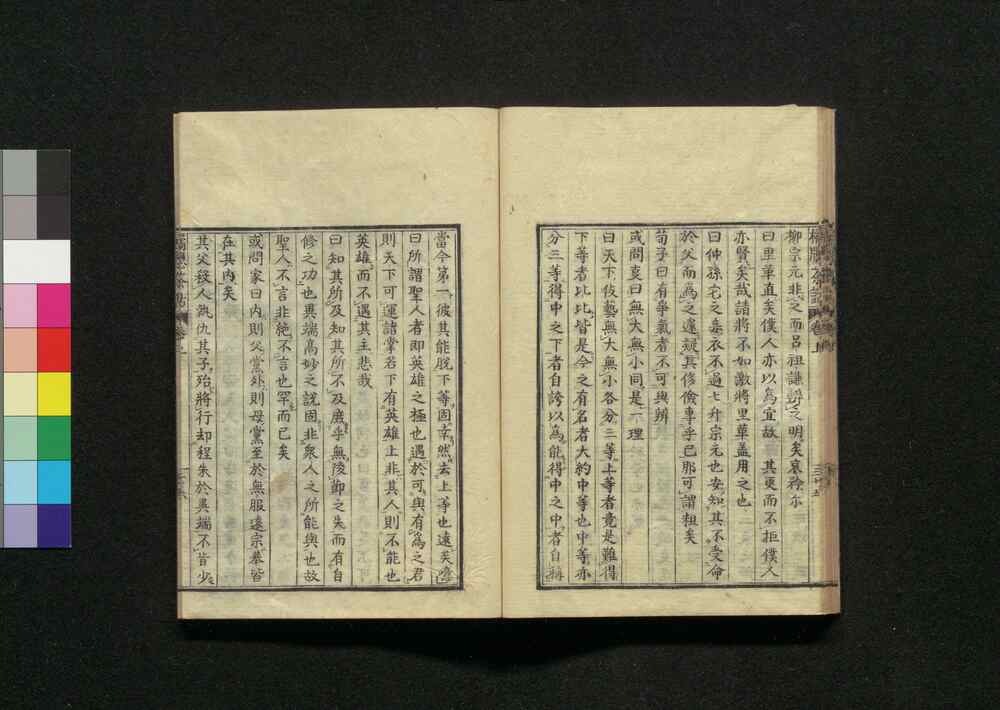 柳宗元非之而呂祖謙辨之明矣哀祿尓
曰里革直矣僕人亦以爲宜故其更而不拒僕人
亦賢矣哉諸將不如激將里革盖用之也
曰仲孫它之妾衣不過七升宗元也安知其不受命
於父而爲之違疑其修儉專乎已那可謂粗矣
荀子曰有爭氣者不可與辨
或問哀曰無大無小同是一理
曰天下伎藝無大無小各分三等上等者竟是難得
下等者比比皆是今之有名者大約中等也中等亦
分三等得中之下者自誇以爲能得中之中者自稱
當今第一彼其能脫下等固幸然去上等也遠矣噫
曰所謂聖人者即英雄之極也遇於可與有爲之君
則天下可運諸掌若下有英雄上非其人則不能也
英雄而不遇其主悲哉
曰知其所及知其所不及庶乎無陵節之失而有自
修之功也異端高妙之說固非衆人之所能與也故
聖人不言非絶不言也罕而已矣
或問家曰内則父黨外則母黨至於無服遠宗摹皆
在其内矣
其父殺人孰仇其子殆將行却程朱於異端不肯少